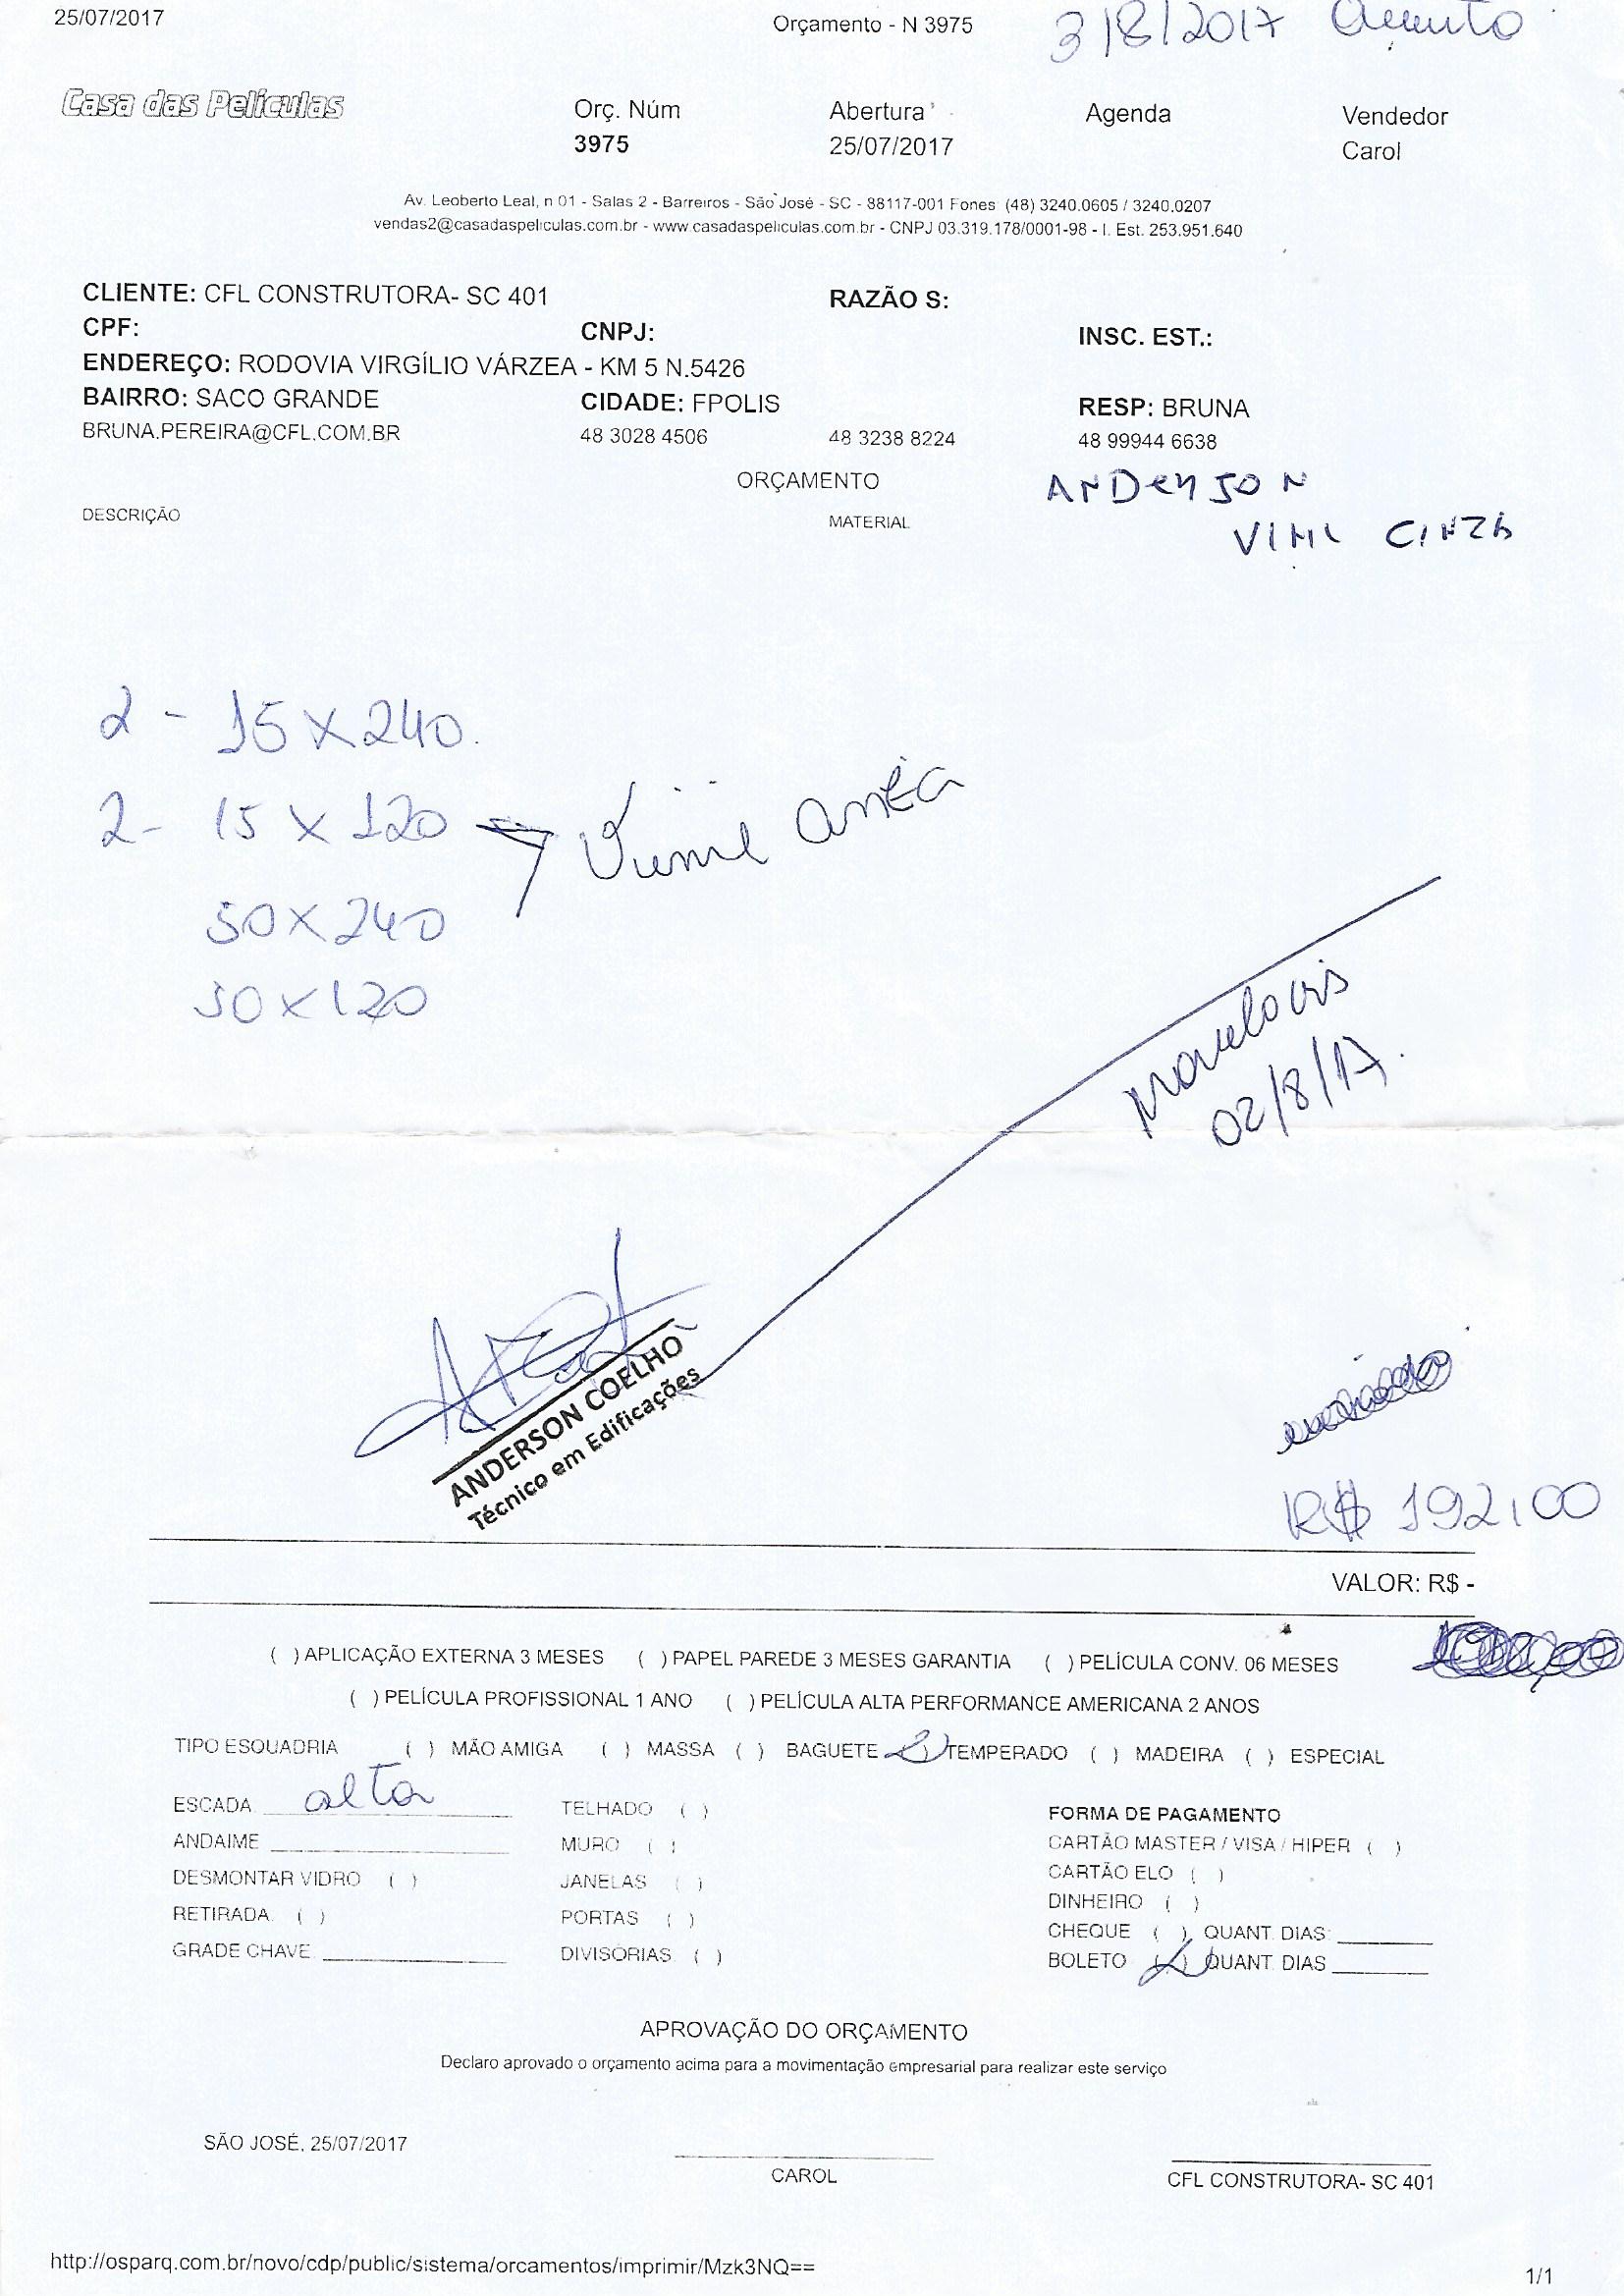 25/07/2017 Orçamento - N 3975 3/8/2017
Casa das Películas
Orç. Núm Abertura Agenda Vendedor
3975 25/07/2017 Carol
Av. Leoberto Leal, n 01 - Salas 2 - Barreiros - São José - SC - 88117-001 Fones: (48) 3240.0605 / 3240.0207
vendas2@casadaspeliculas.com.br - www.casadaspeliculas.com.br - CNPJ 03.319.178/0001-98 - I. Est. 253.951.640
CLIENTE: CFL CONSTRUTORA- SC 401 RAZÃO S:
CPF: CNPJ: INSC. EST.:
ENDEREÇO: RODOVIA VIRGÍLIO VÁRZEA - KM 5 N.5426
BAIRRO: SACO GRANDE CIDADE: FPOLIS RESP: BRUNA
BRUNA.PEREIRA@CFL.COM.BR 48 3028 4506 48 3238 8224 48 99944 6638
ORÇAMENTO ANDERSON
DESCRIÇÃO MATERIAL
VINIL CINZA
2 - 15 X 240.
2 - 15 X 120
50 X 240
50 X 120
02/8/17.
ANDERSON COELHO
Técnico em Edificações
R$ 192,00
VALOR: R$ -
( ) APLICAÇÃO EXTERNA 3 MESES ( ) PAPEL PAREDE 3 MESES GARANTIA ( ) PELÍCULA CONV. 06 MESES
( ) PELÍCULA PROFISSIONAL 1 ANO ( ) PELÍCULA ALTA PERFORMANCE AMERICANA 2 ANOS
TIPO ESQUADRIA ( ) MÃO AMIGA ( ) MASSA ( ) BAGUETE ( ) TEMPERADO ( ) MADEIRA ( ) ESPECIAL
ESCADA alta TELHADO ( ) FORMA DE PAGAMENTO
ANDAIME MURO ( ) CARTÃO MASTER / VISA / HIPER ( )
DESMONTAR VIDRO ( ) JANELAS ( ) CARTÃO ELO ( )
RETIRADA ( ) PORTAS ( ) DINHEIRO ( )
GRADE CHAVE DIVISÓRIAS ( ) CHEQUE ( ) QUANT. DIAS:
BOLETO ( ) QUANT. DIAS
APROVAÇÃO DO ORÇAMENTO
Declaro aprovado o orçamento acima para a movimentação empresarial para realizar este serviço
SÃO JOSÉ, 25/07/2017
CAROL CFL CONSTRUTORA- SC 401
http://osparq.com.br/novo/cdp/public/sistema/orcamentos/imprimir/Mzk3NQ== 1/1